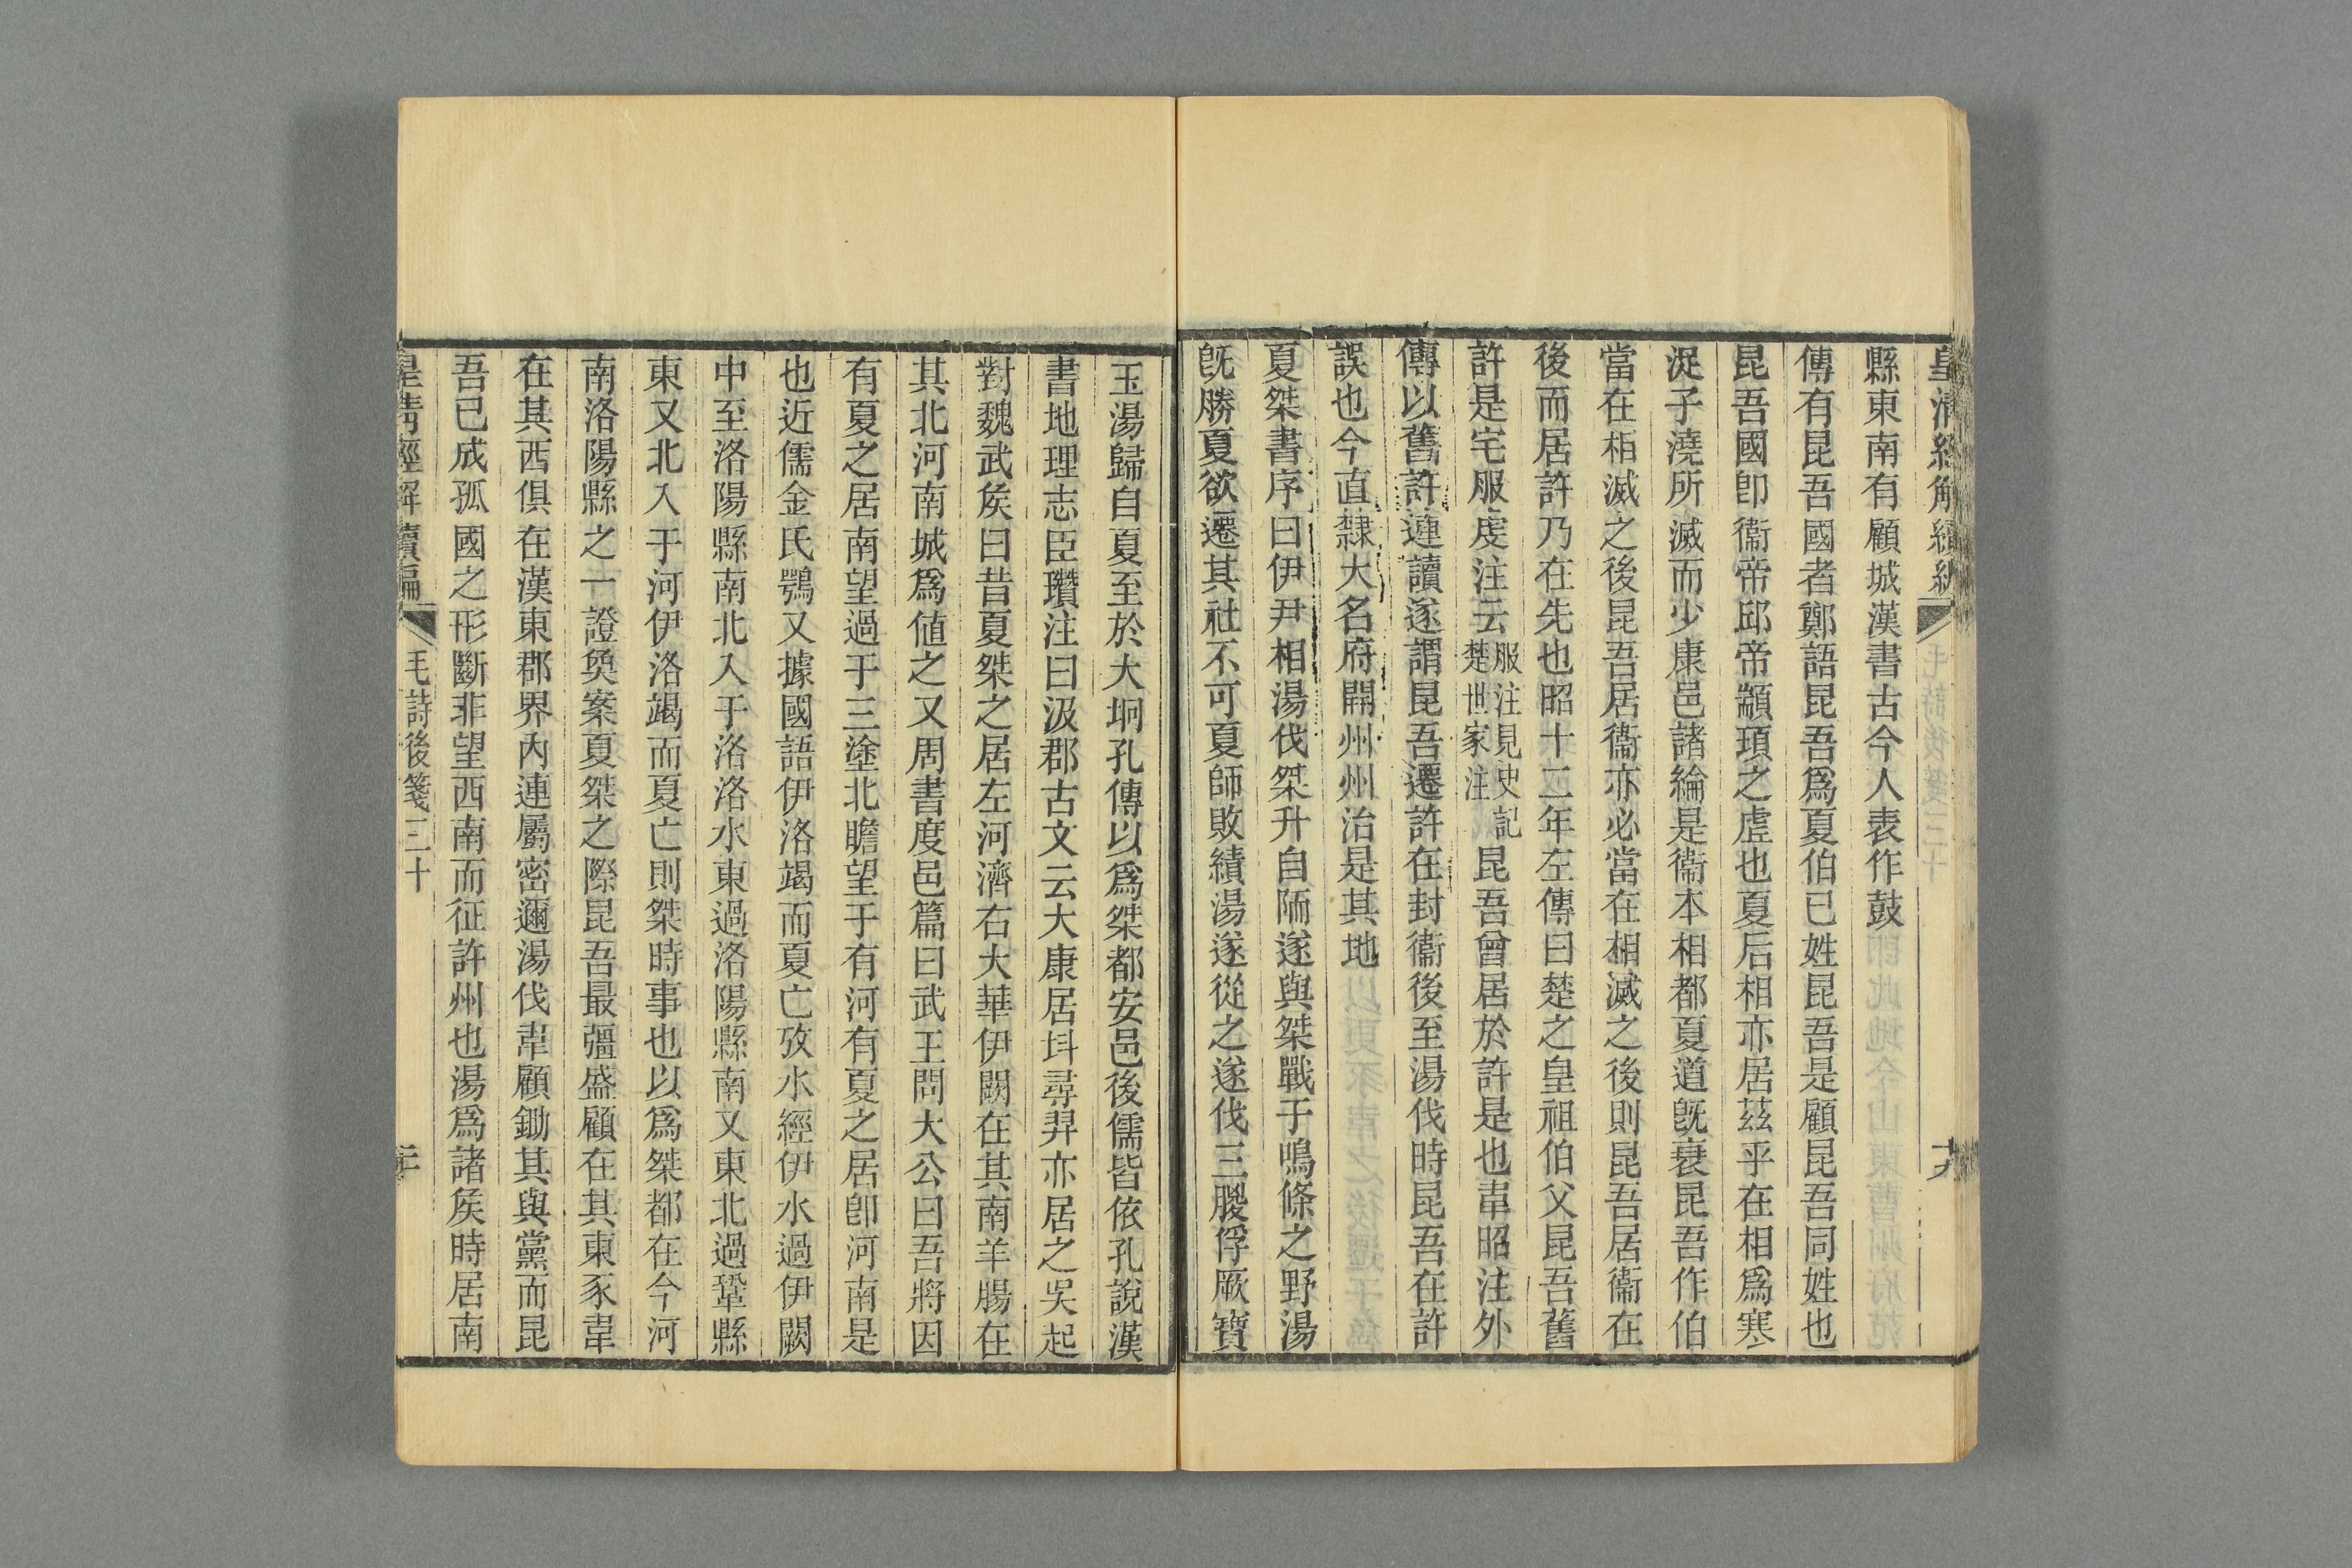 縣東南有顧城漢書古今人表作鼓
傳有昆吾國者鄭語昆吾爲夏伯已姓昆吾是顧昆吾同姓也
昆吾國卽衞帝邱帝顓頊之虛也夏后相亦居茲乎在相爲寒
浞子澆所滅而少康邑諸綸是衞本相都夏道旣衰昆吾作伯
當在相滅之後昆吾居衞亦必當在相滅之後則昆吾居衞在
後而居許乃在先也昭十二年左傳曰楚之皇祖伯父昆吾舊
許是宅服虔注云服注見史記楚世家注昆吾曾居於許是也韋昭注外
傳以舊許連讀遂謂昆吾遷許在封衞後至湯伐時昆吾在許
誤也今直隸大名府開州州治是其地
夏桀書序曰伊尹相湯伐桀升自陑遂與桀戰于鳴條之野湯
旣勝夏欲遷其社不可夏師敗績湯遂從之遂伐三朡俘厥寶
玉湯歸自夏至於大坰孔傳以爲桀都安邑後儒皆依孔說漢
書地理志臣瓚注曰汲郡古文云大康居斟尋羿亦居之吳起
對魏武矦曰昔夏桀之居左河濟右大華伊闕在其南羊腸在
其北河南城爲値之又周書度邑篇曰武王問大公曰吾將因
有夏之居南望過于三塗北瞻望于有河有夏之居卽河南是
也近儒金氏鶚又據國語伊洛竭而夏亡攷水經伊水過伊闕
中至洛陽縣南北入于洛洛水東過洛陽縣南又東北過鞏縣
東又北入于河伊洛竭而夏亡則桀時事也以爲桀都在今河
南洛陽縣之一證奐案夏桀之際昆吾最彊盛顧在其東豕韋
在其西俱在漢東郡界內連屬密邇湯伐韋顧鋤其與黨而昆
吾已成孤國之形斷非望西南而征許州也湯爲諸矦時居南
皇淸經解續編 毛詩後箋三十